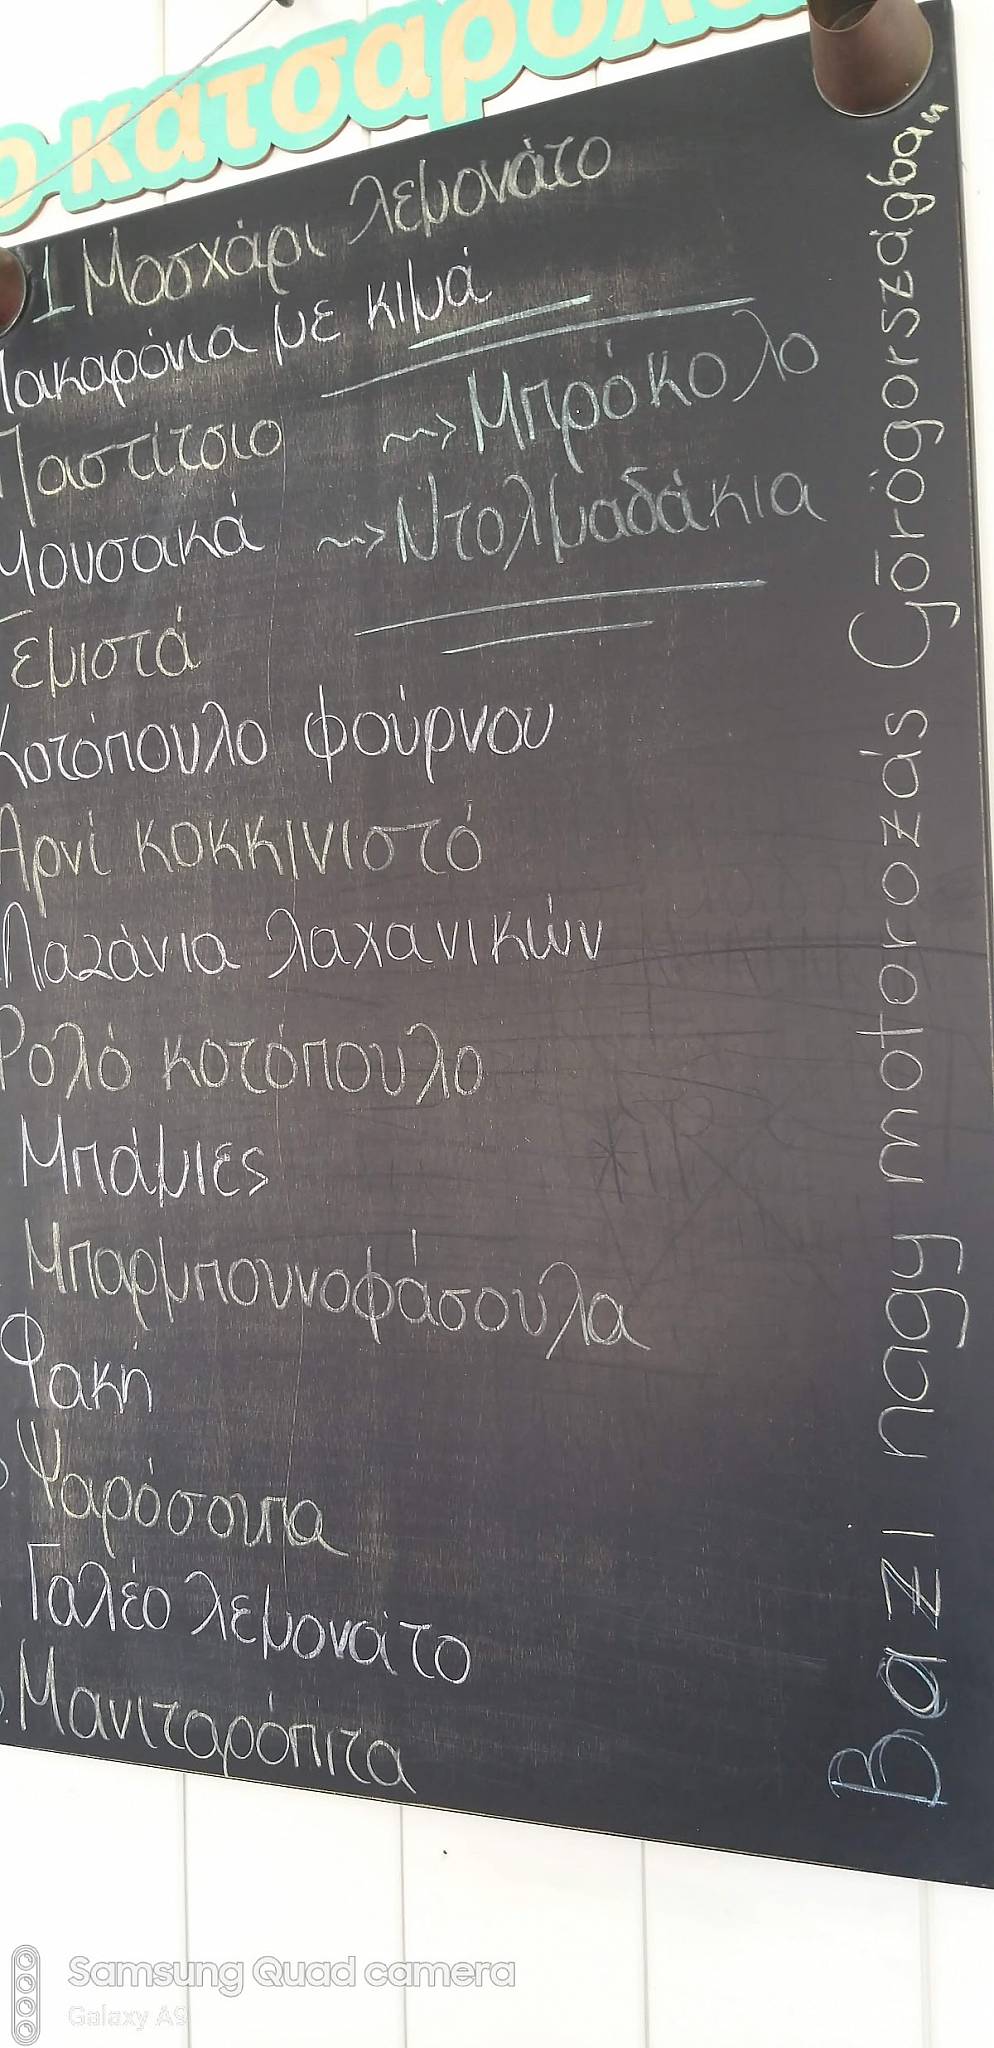 ο κατσαρόλα
1 Μοσχάρι λεμονάτο
Μακαρόνια με κιμά
Παστίτσιο
~~> Μπρόκολο
Μουσακά
~~> Ντολμαδάκια
Γεμιστά
Κοτόπουλο φούρνου
Αρνί κοκκινιστό
Λαζάνια λαχανικών
Ρολό κοτόπουλο
Μπάμιες
Μπαρμπουνοφάσουλα
Φακή
Ψαρόσουπα
Γαλέο λεμονάτο
Μανιταρόπιτα
Bazi nagy motorozás Görögországban
Samsung Quad camera
Galaxy A9